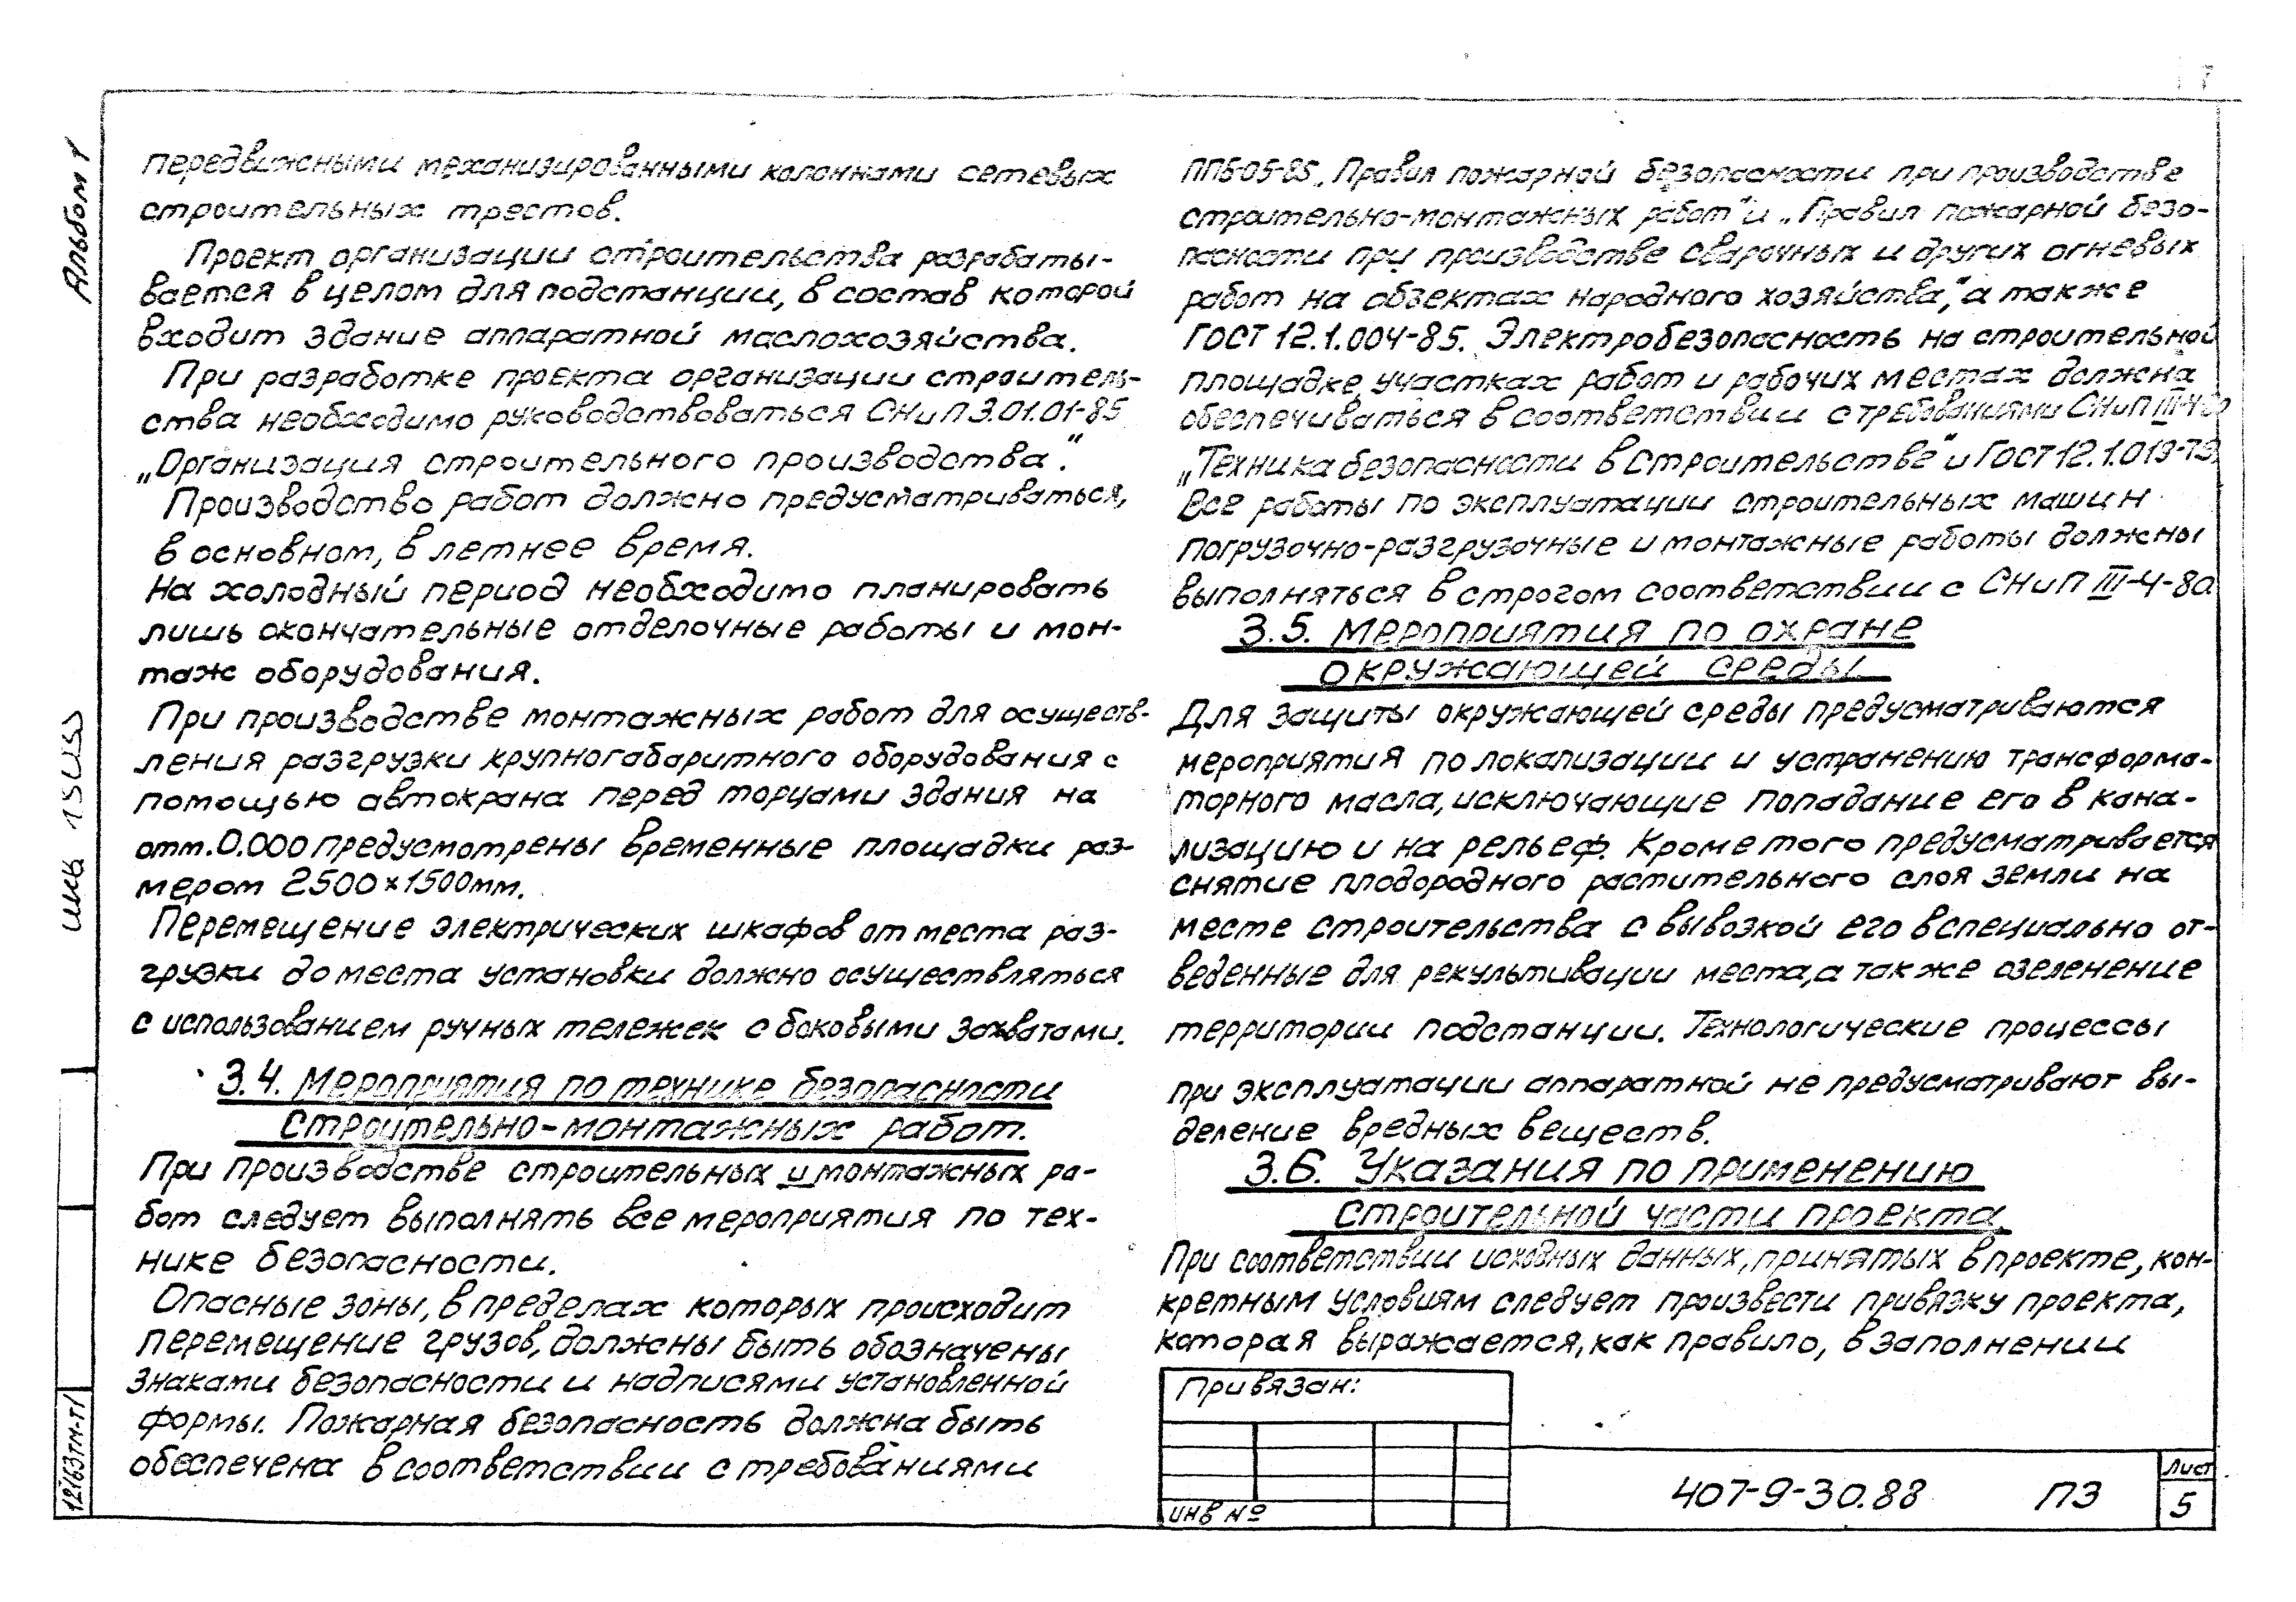 Альбом 1
передвижными механизированными колоннами сетевых
строительных трестов.
Проект организации строительства разрабаты-
вается в целом для подстанции, в состав которой
входит здание аппаратной маслохозяйства.
При разработке проекта организации строитель-
ства необходимо руководствоваться СНиП 3.01.01-85
„Организация строительного производства“.
Производство работ должно предусматриваться,
в основном, в летнее время.
На холодный период необходимо планировать
лишь окончательные отделочные работы и мон-
таж оборудования.
При производстве монтажных работ для осуществ-
ления разгрузки крупногабаритного оборудования с
помощью автокрана перед торцами здания на
отм. 0.000 предусмотрены временные площадки раз-
мером 2500×1500мм.
Перемещение электрических шкафов от места раз-
грузки до места установки должно осуществляться
с использованием ручных тележек с боковыми захватами.
3.4. Мероприятия по технике безопасности
строительно-монтажных работ.
При производстве строительных и монтажных ра-
бот следует выполнять все мероприятия по тех-
нике безопасности.
Опасные зоны, в пределах которых происходит
перемещение грузов, должны быть обозначены
знаками безопасности и надписями установленной
формы. Пожарная безопасность должна быть
обеспечена в соответствии с требованиями
ППБ-05-85 „Правил пожарной безопасности при производстве
строительно-монтажных работ“ и „Правил пожарной безо-
пасности при производстве сварочных и других огневых
работ на объектах народного хозяйства,“ а также
ГОСТ 12.1.004-85. Электробезопасность на строительной
площадке, участках работ и рабочих местах должна
обеспечиваться в соответствии с требованиями СНиП III-4-80
„Техника безопасности в строительстве“ и ГОСТ 12.1.013-78.
Все работы по эксплуатации строительных машин
погрузочно-разгрузочные и монтажные работы должны
выполняться в строгом соответствии с СНиП III-4-80.
3.5. Мероприятия по охране
окружающей среды.
Для защиты окружающей среды предусматриваются
мероприятия по локализации и устранению трансформа-
торного масла, исключающие попадание его в кана-
лизацию и на рельеф. Кроме того предусматривается
снятие плодородного растительного слоя земли на
месте строительства с вывозкой его в специально от-
веденные для рекультивации места, а также озеленение
территории подстанции. Технологические процессы
при эксплуатации аппаратной не предусматривают вы-
деление вредных веществ.
3.6. Указания по применению
строительной части проекта
При соответствии исходных данных, принятых в проекте, кон-
кретным условиям следует произвести привязку проекта,
которая выражается, как правило, в заполнении
Привязан:
инв №
407-9-30.88 ПЗ
Лист
5
12163тм-т1